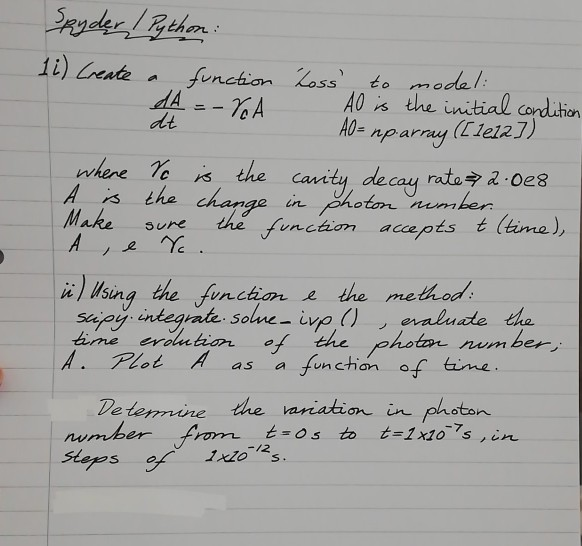 Spyder / Python:
1i) Create a function 'Loss' to model:
dA/dt = - γc A A0 is the initial condition
A0= np.array([1e12])
where γc is the cavity decay rate ⇒ 2.0e8
A is the change in photon number.
Make sure the function accepts t (time),
A , & γc .
ii) Using the function & the method:
scipy.integrate.solve_ivp () , evaluate the
time evolution of the photon number;
A. Plot A as a function of time.
Determine the variation in photon
number from t=0s to t=1x10⁻⁷s , in
steps of 1x10⁻¹²s.